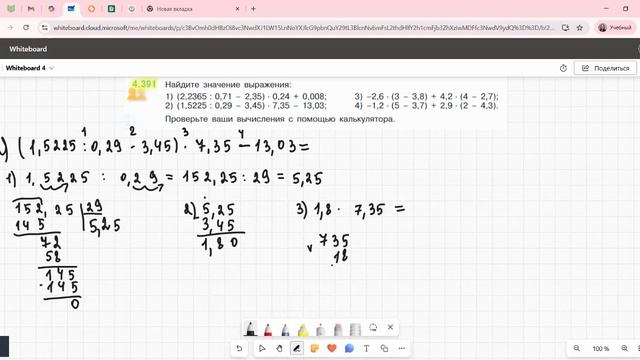 Новая вкладка
Учебный
Whiteboard
Whiteboard 4
Поделиться
4.391 Найдите значение выражения:
1) (2,2365 : 0,71 – 2,35) · 0,24 + 0,008; 3) –2,6 · (3 – 3,8) + 4,2 · (4 – 2,7);
2) (1,5225 : 0,29 – 3,45) · 7,35 – 13,03; 4) –1,2 · (5 – 3,7) + 2,9 · (2 – 4,3).
Проверьте ваши вычисления с помощью калькулятора.
1 2 3 4
(1,5225 : 0,29 - 3,45) · 7,35 - 13,03 =
1) 1,5225 : 0,29 = 152,25 : 29 = 5,25
152,25 29
145 5,25
72
58
145
- 145
0
2) 5,25
3,45
1,80
3) 1,8 · 7,35 =
× 735
18
100 %